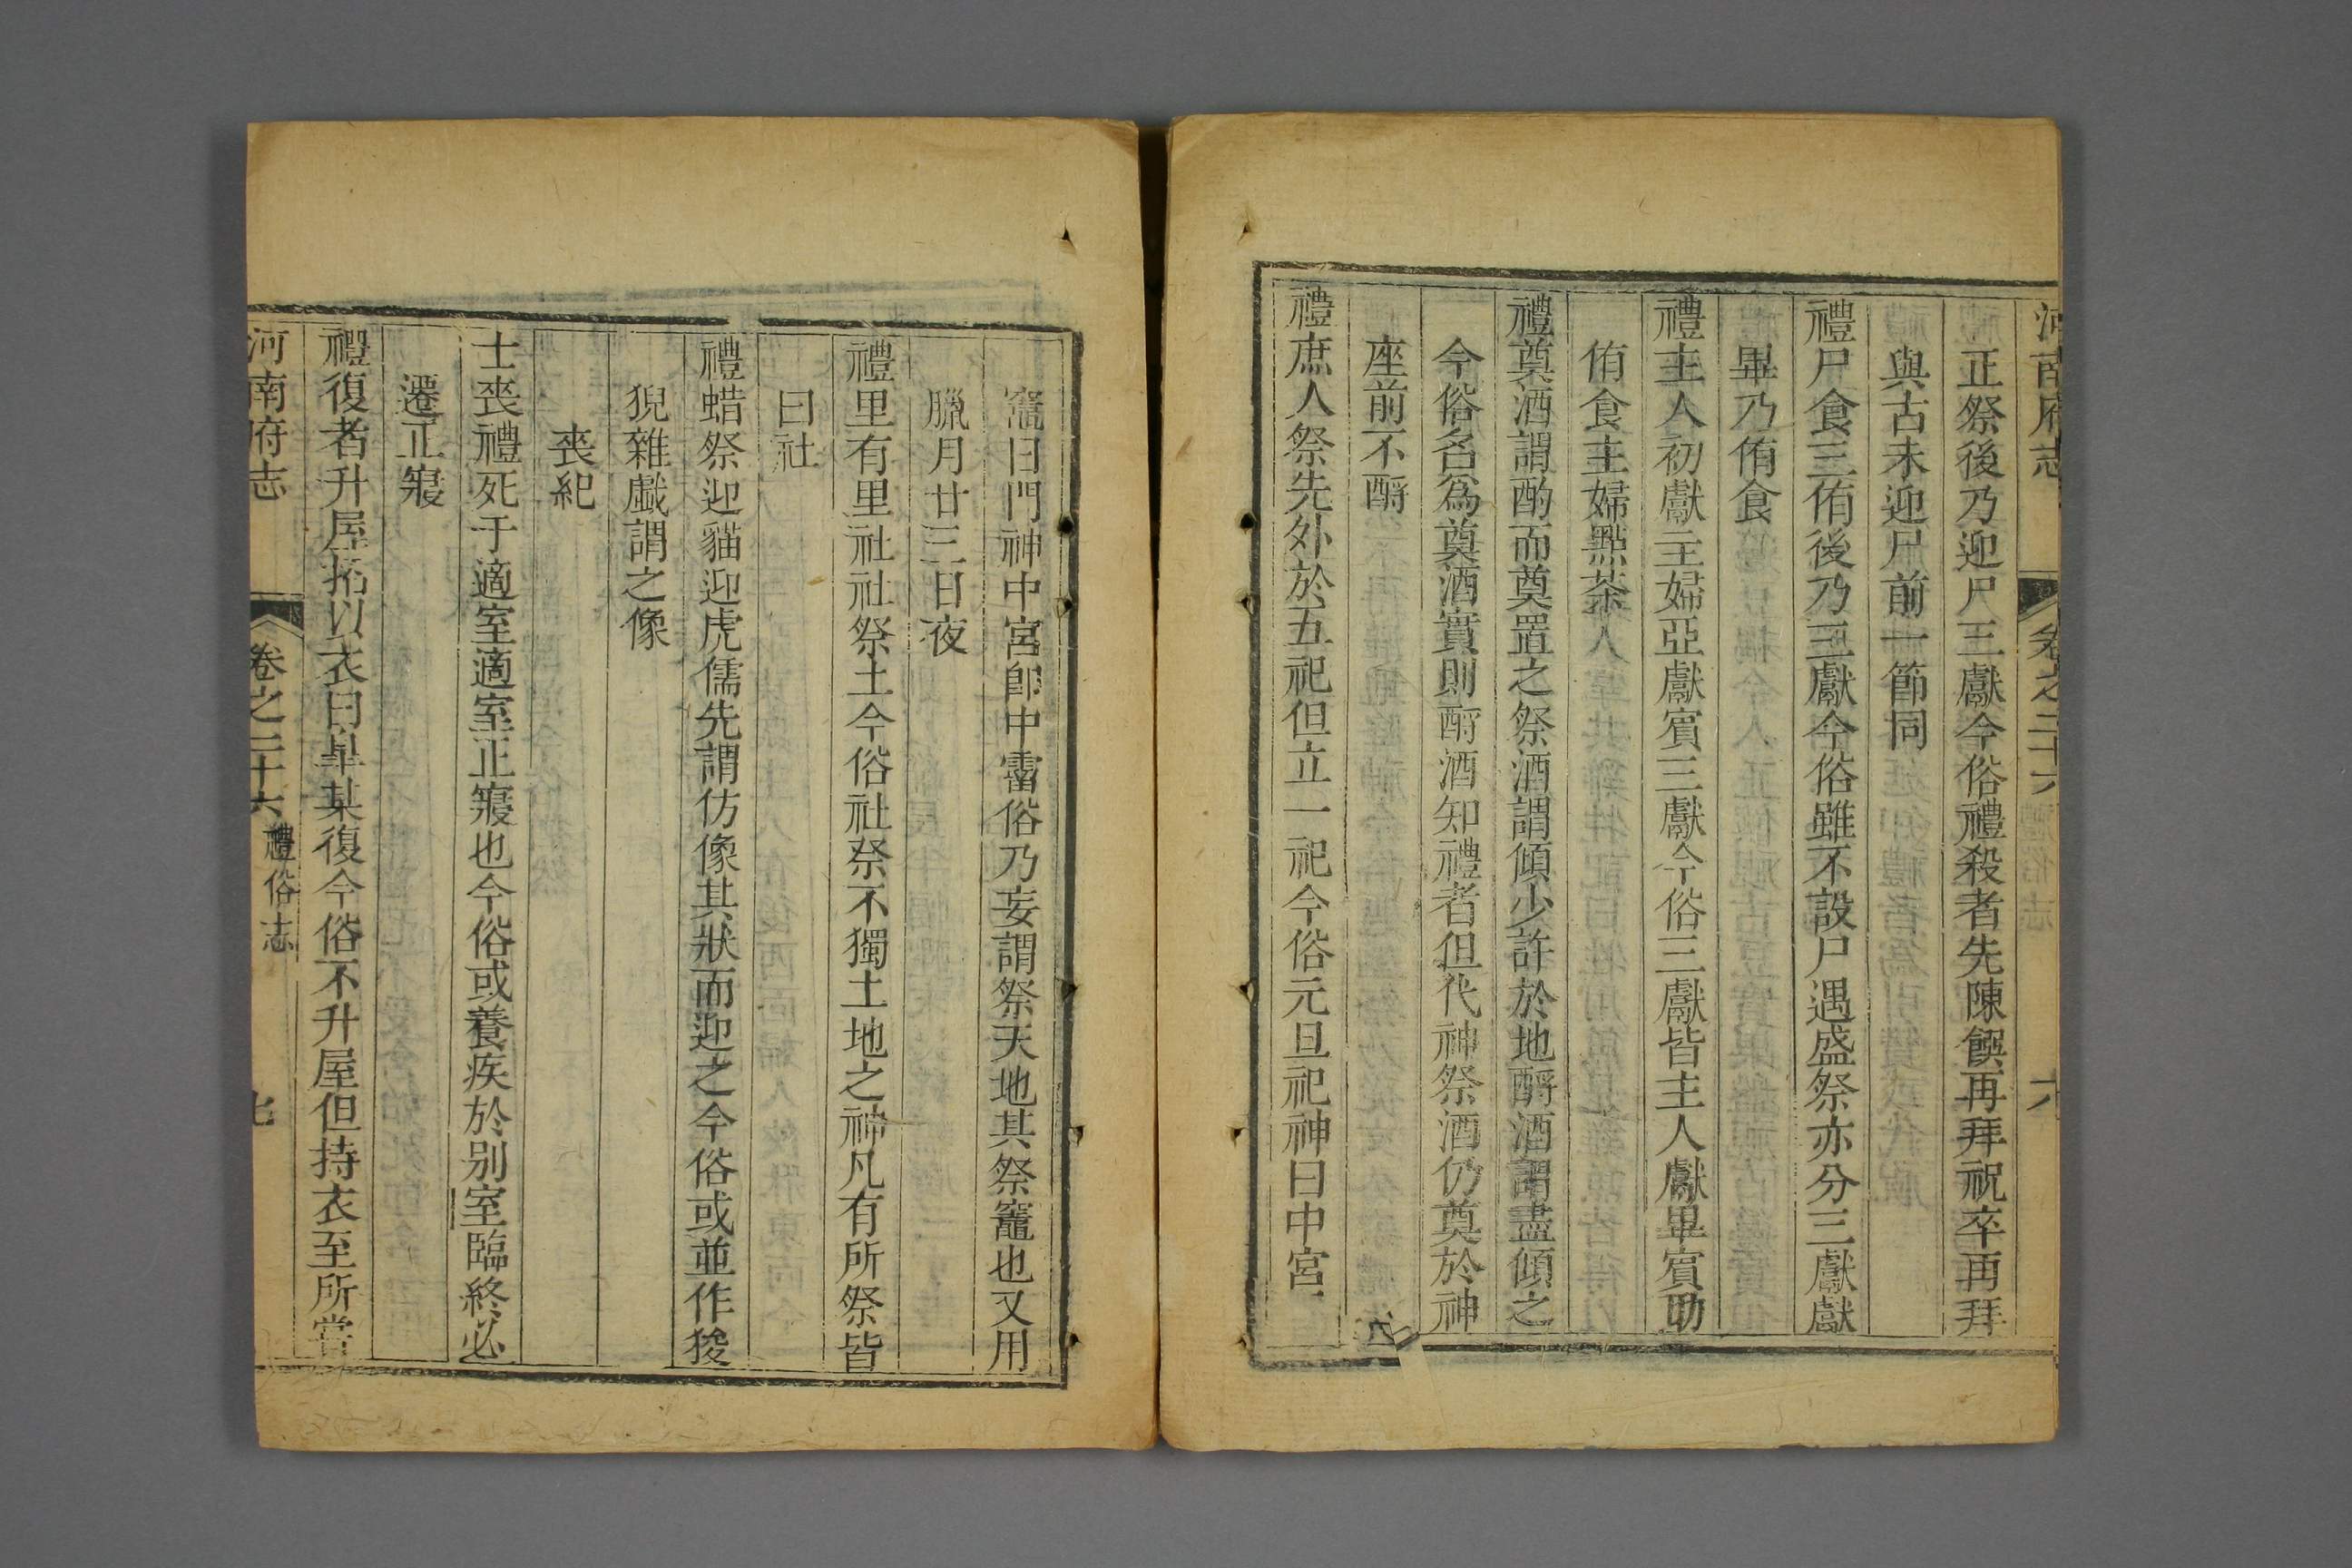 河南府志 卷之二十六 禮俗志 六
正祭後乃迎尸三獻今俗禮殺者先陳饌再拜祝卒再拜
與古未迎尸前一節同
禮尸食三侑後乃三獻今俗雖不設尸遇盛祭亦分三獻獻
畢乃侑食
禮主人初獻主婦亞獻賓三獻今俗三獻皆主人獻畢賓助
侑食主婦點茶
禮奠酒謂酌而奠置之祭酒謂傾少許於地酹酒謂盡傾之
今俗名為奠酒實則酹酒知禮者但代神祭酒仍奠於神
座前不酹
禮庶人祭先外於五祀但立一祀今俗元旦祀神曰中宮
竈曰門神中宮卽中霤俗乃妄謂祭天地其祭竈也又用
臘月廿三日夜
禮里有里社社祭土今俗社祭不獨土地之神凡有所祭皆
曰社
禮蜡祭迎貓迎虎儒先謂仿像其狀而迎之今俗或並作狻
猊雜戱謂之像
喪紀
士喪禮死于適室適室正寢也今俗或養疾於别室臨終必
遷正寢
禮復者升屋招以衣曰臯某復今俗不升屋但持衣至所當
河南府志 卷之二十六 禮俗志 七